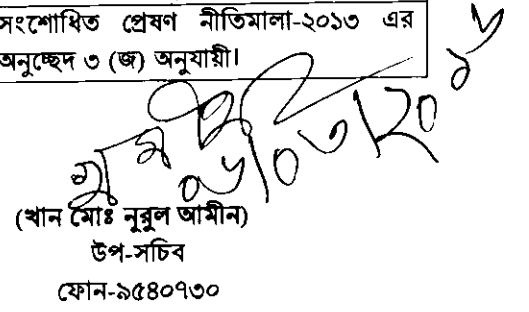 সংশোধিত প্রেষণ নীতিমালা-২০১৩ এর
অনুচ্ছেদ ৩ (জ) অনুযায়ী।
(খান মোঃ নূরুল আমীন)
উপ-সচিব
ফোন-৯৫৪০৭৩০